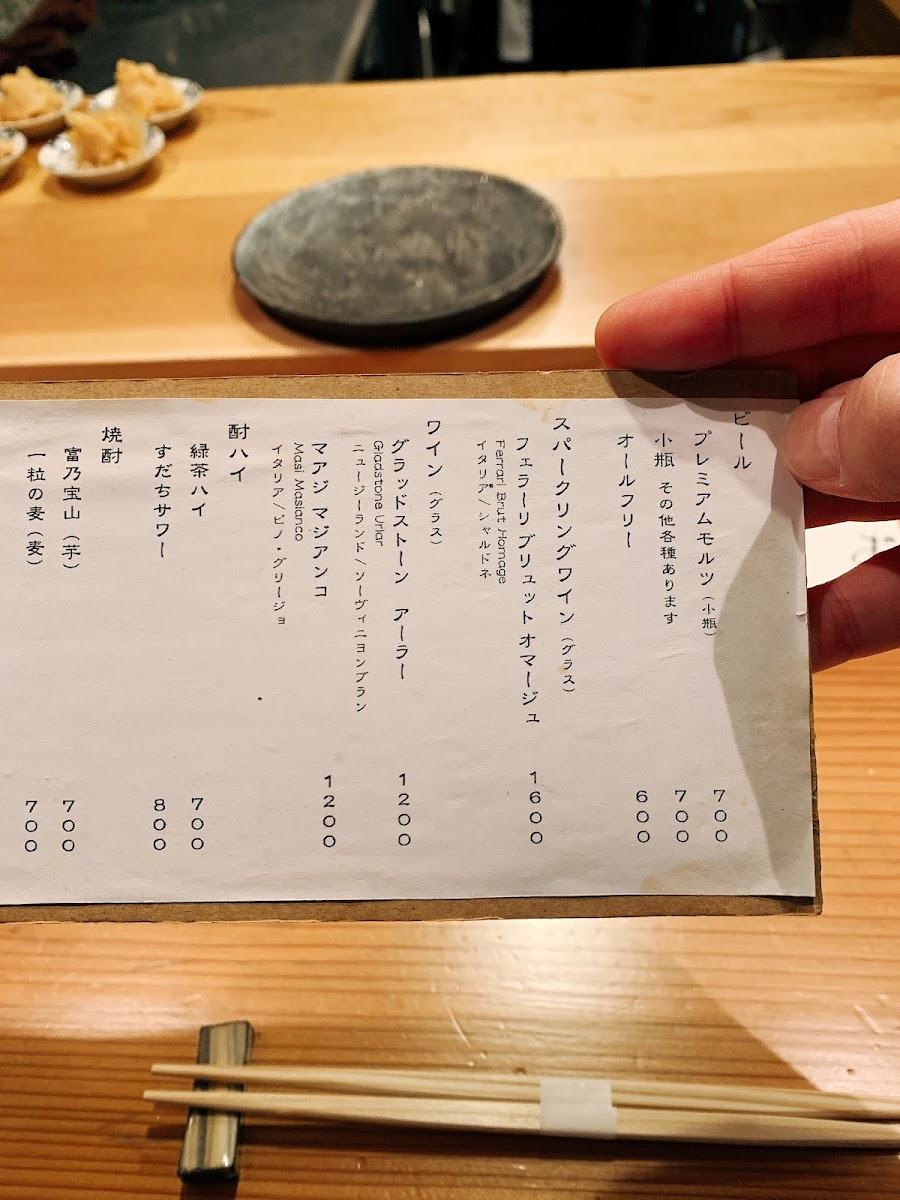 ビール
プレミアムモルツ（小瓶） 700
小瓶 その他各種あります 700
オールフリー 600
スパークリングワイン（グラス）
フェラーリ ブリュット オマージュ 1600
Ferrari Brut Homage
イタリア／シャルドネ
ワイン（グラス）
グラッドストーン アーラー 1200
Gladstone Urlar
ニュージーランド／ソーヴィニヨンブラン
マアジ マジアンコ 1200
Masi Masianco
イタリア／ピノ・グリージョ
酎ハイ
緑茶ハイ 700
すだちサワー 800
焼酎
富乃宝山（芋） 700
一粒の麦（麦） 700